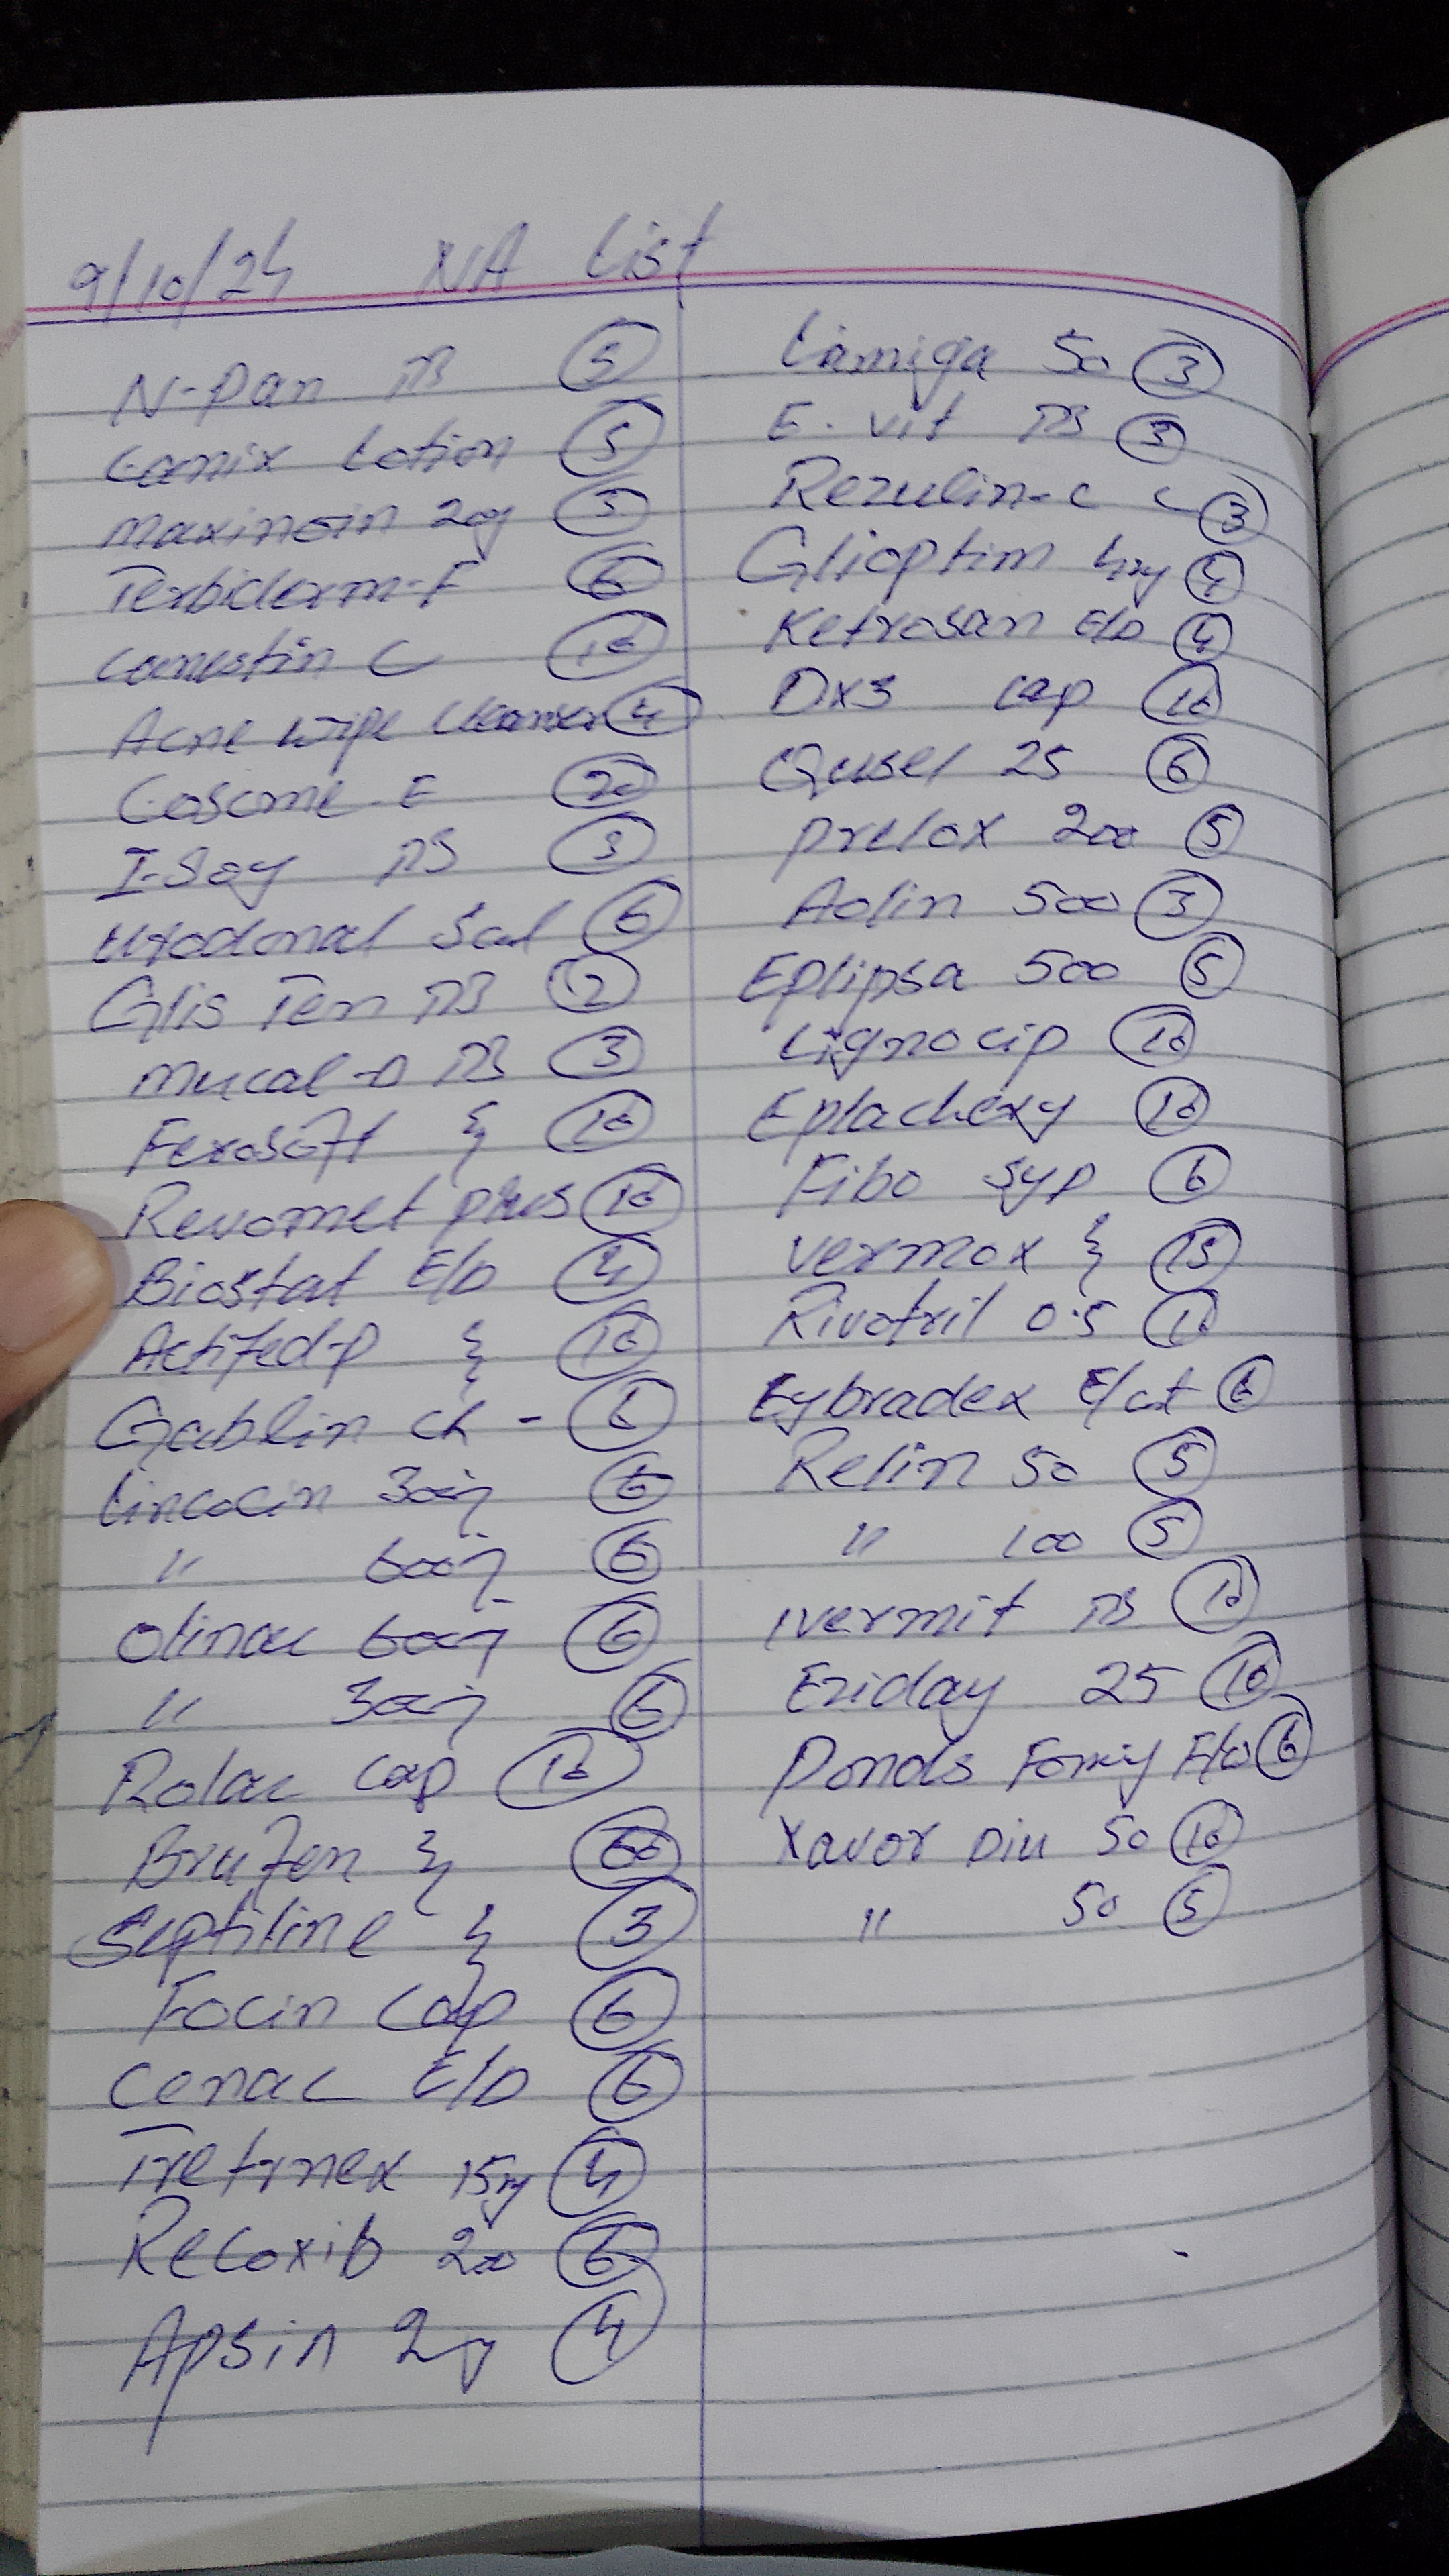 9/10/24 NA List
N-Pan TB 5
Lamix Lotion 5
Maxinoin 20g 3
Terbiderm-F 6
Canestin C 10
Acne wipe Cleanser 4
Cosome-E 20
I-Soy TB 3
Urodonal Scal 6
Glis Ten TB 2
Mucal-D TB 3
Fexosoft } 10
Revomet plus 10
Biostat E/D 4
Actifed-P } 10
Gablin ch - 6
Lincocin 300mg 6
" 600mg 6
Olinac 600mg 6
" 300mg 6
Rolac cap 10
Brufen } 60
Septiline } 3
Focin Cap 6
Cenac E/D 6
Tretinex 15g 4
Recoxib 200 6
Apsin 2g 4
Lamiga 50 3
E. vit TB 3
Rezulin-C C 3
Glioptim 4mg 4
Ketrosan E/D 4
Dx3 cap 10
Qusel 25 6
Prelox 200 5
Aolin 500 3
Eplipsa 500 5
Lignocip 10
Eplachexy 10
Fibo syp 6
Vermox } 15
Rivotril 0.5 10
Eybradex E/ct 6
Relin 50 5
" 100 5
Ivermit TB 10
Eziday 25 10
Ponds Fomy F/w 6
Xavor Diu 50 10
" 50 5